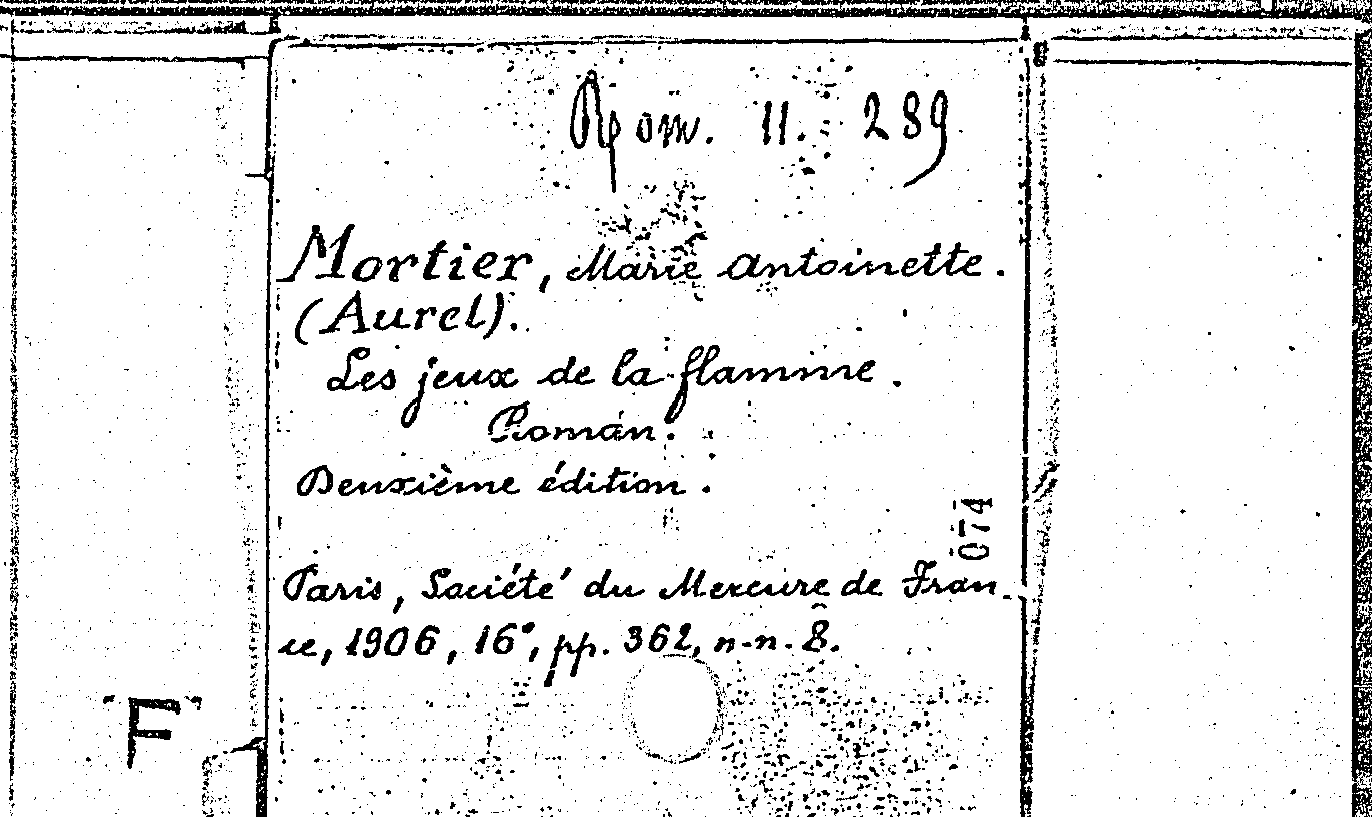 Rom. 11. 289
Mortier, Marie Antoinette.
(Aurel).
Les jeux de la flamme.
Roman.
Deuxième édition.
074
Paris, Société du Mercure de Fran-
ce, 1906, 16°, pp. 362, n-n. 8.
"F"